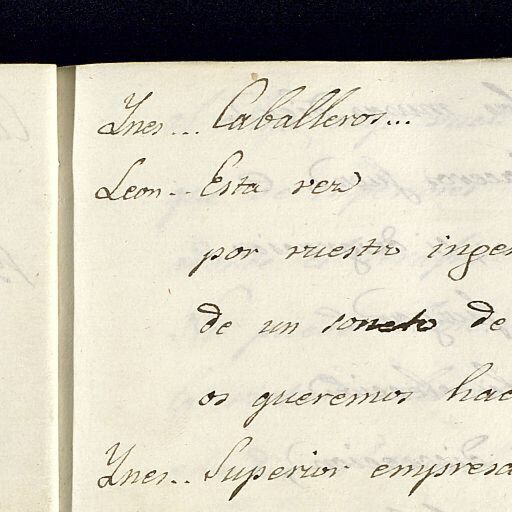 Ynes... Caballeros...
Leon.. Esta vez
por vuestro ingen
de un soneto de
os queremos hac
Ynes.. Superior empresa